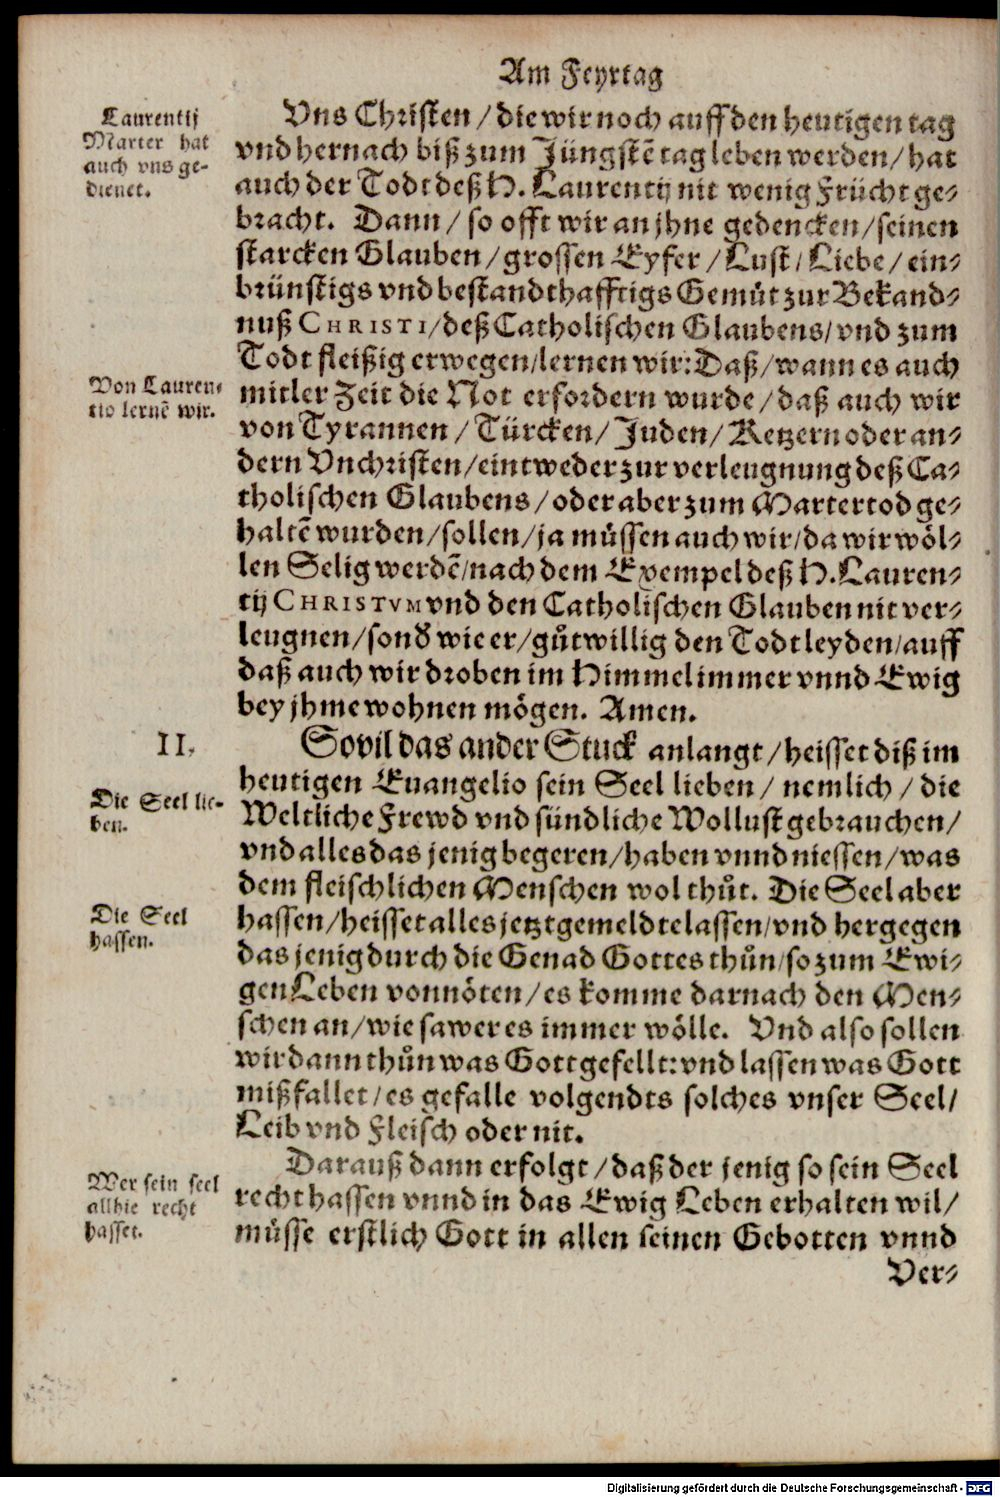 Am Feyrtag
Laurentij
Marter hat
auch vns ge-
dienet.
Vns Christen / die wir noch auff den heutigen tag
vnd hernach biß zum Jüngstē tag leben werden / hat
auch der Todt deß H. Laurentij nit wenig Frücht ge-
bracht. Dann / so offt wir an jhne gedencken / seinen
starcken Glauben / grossen Eyfer / Lust / Liebe / ein-
brünstigs vnd bestandthafftigs Gemüt zur Bekand-
nuß CHRISTI / deß Catholischen Glaubens / vnd zum
Todt fleißig erwegen / lernen wir: Daß / wann es auch
Von Lauren-
tio lernē wir.
mitler Zeit die Not erfordern wurde / daß auch wir
von Tyrannen / Türcken / Juden / Ketzern oder an-
dern Vnchristen / eintweder zur verleugnung deß Ca-
tholischen Glaubens / oder aber zum Martertod ge-
haltē wurden / sollen / ja müssen auch wir / da wir wöl-
len Selig werdē / nach dem Exempel deß H. Lauren-
tij CHRISTVM vnd den Catholischen Glauben nit ver-
leugnen / sond̄ wie er / gůtwillig den Todt leyden / auff
daß auch wir droben im Himmel immer vnnd Ewig
bey jhme wohnen mögen. Amen.
II.
Sovil das ander Stuck anlangt / heisset diß im
heutigen Euangelio sein Seel lieben / nemlich / die
Die Seel lie-
ben.
Weltliche Frewd vnd sündliche Wollust gebrauchen /
vnd alles das jenig begeren / haben vnnd niessen / was
dem fleischlichen Menschen wol thůt. Die Seel aber
Die Seel
hassen.
hassen / heisset alles jetzt gemeldte lassen / vnd hergegen
das jenig durch die Genad Gottes thůn / so zum Ewi-
gen Leben vonnöten / es komme darnach den Men-
schen an / wie sawer es immer wölle. Vnd also sollen
wir dann thůn was Gott gefellt: vnd lassen was Gott
mißfallet / es gefalle volgendts solches vnser Seel /
Leib vnd Fleisch oder nit.
Darauß dann erfolgt / daß der jenig so sein Seel
Wer sein seel
allhie recht
hasset.
recht hassen vnnd in das Ewig Leben erhalten wil /
müsse erstlich Gott in allen seinen Gebotten vnnd
Ver-
Digitalisierung gefördert durch die Deutsche Forschungsgemeinschaft - DFG